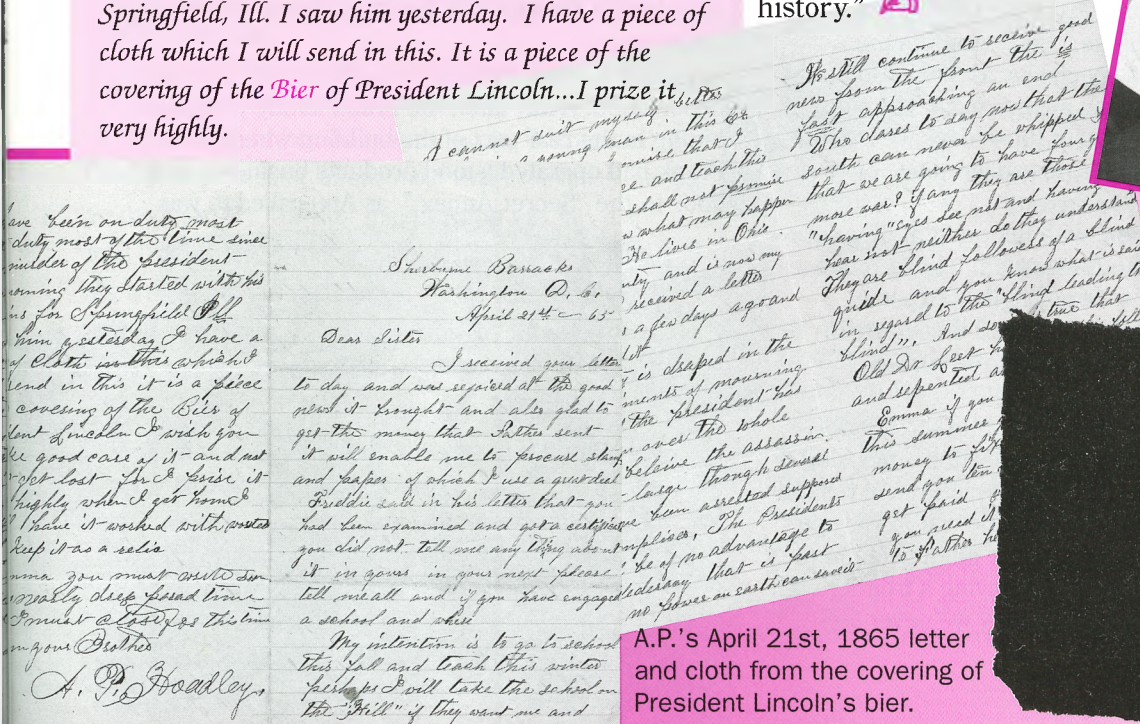 Springfield, Ill. I saw him yesterday. I have a piece of
cloth which I will send in this. It is a piece of the
covering of the Bier of President Lincoln...I prize it
very highly.
history."
ave been on duty most
duty most of the time since
murder of the president
morning they started with his
ns for Springfield Ill
him yesterday I have a
of cloth in this which I
send in this it is a piece
covering of the Bier of
dent Lincoln I wish you
ke good care of it and not
get lost for I prise it
highly when I get home I
have it worked with worsted
keep it as a relic
mma you must write soon
nearly drep perad time
I must close for this time
m your Brother
A. P. Hoadley.
Sherburne Barracks
Washington D. C.
April 21st – 65
Dear Sister
I received your letter
to day and was rejoiced at the good
news it brought and also glad to
get the money that Father sent
it will enable me to procure stamps
and paper of which I use a great deal
Freddie said in his letter that you
had been examined and got a certificate
you did not tell me any thing about
it in yours in your next please
tell me all and if you have engaged
a school and where
My intention is to go to school
this fall and teach this winter
perhaps I will take the school on
the "Hill" if they want me and
I cannot suit myself better
a young man in this Co
omise that I
ce and teach this
shall not promise
w what may happen
He lives in Ohio.
nty and is now my
received a letter
a few days ago and
it
is draped in the
ments of mourning
the president has
over the whole
beleive the assassin
large though several
ve been arested supposed
mplises. The Presidents
be of no advantage to
federacy that is past
no power on earth can save it
We still continue to receive good
news from the front the is
fast approaching an end
Who dares to day now that the
south can never be whipped
that we are going to have four
more war? if any they are those
"having" eyes see not and having
hear not neither do they understand
They are blind followers of a blind
guide and you know what is said
in regard to the "blind leading the
blind". And
true that
Old Dr Lect
and repented
Emma if you
this summer
money to fix
send you ten
get paid
you need it
to Father he
A.P.'s April 21st, 1865 letter
and cloth from the covering of
President Lincoln's bier.